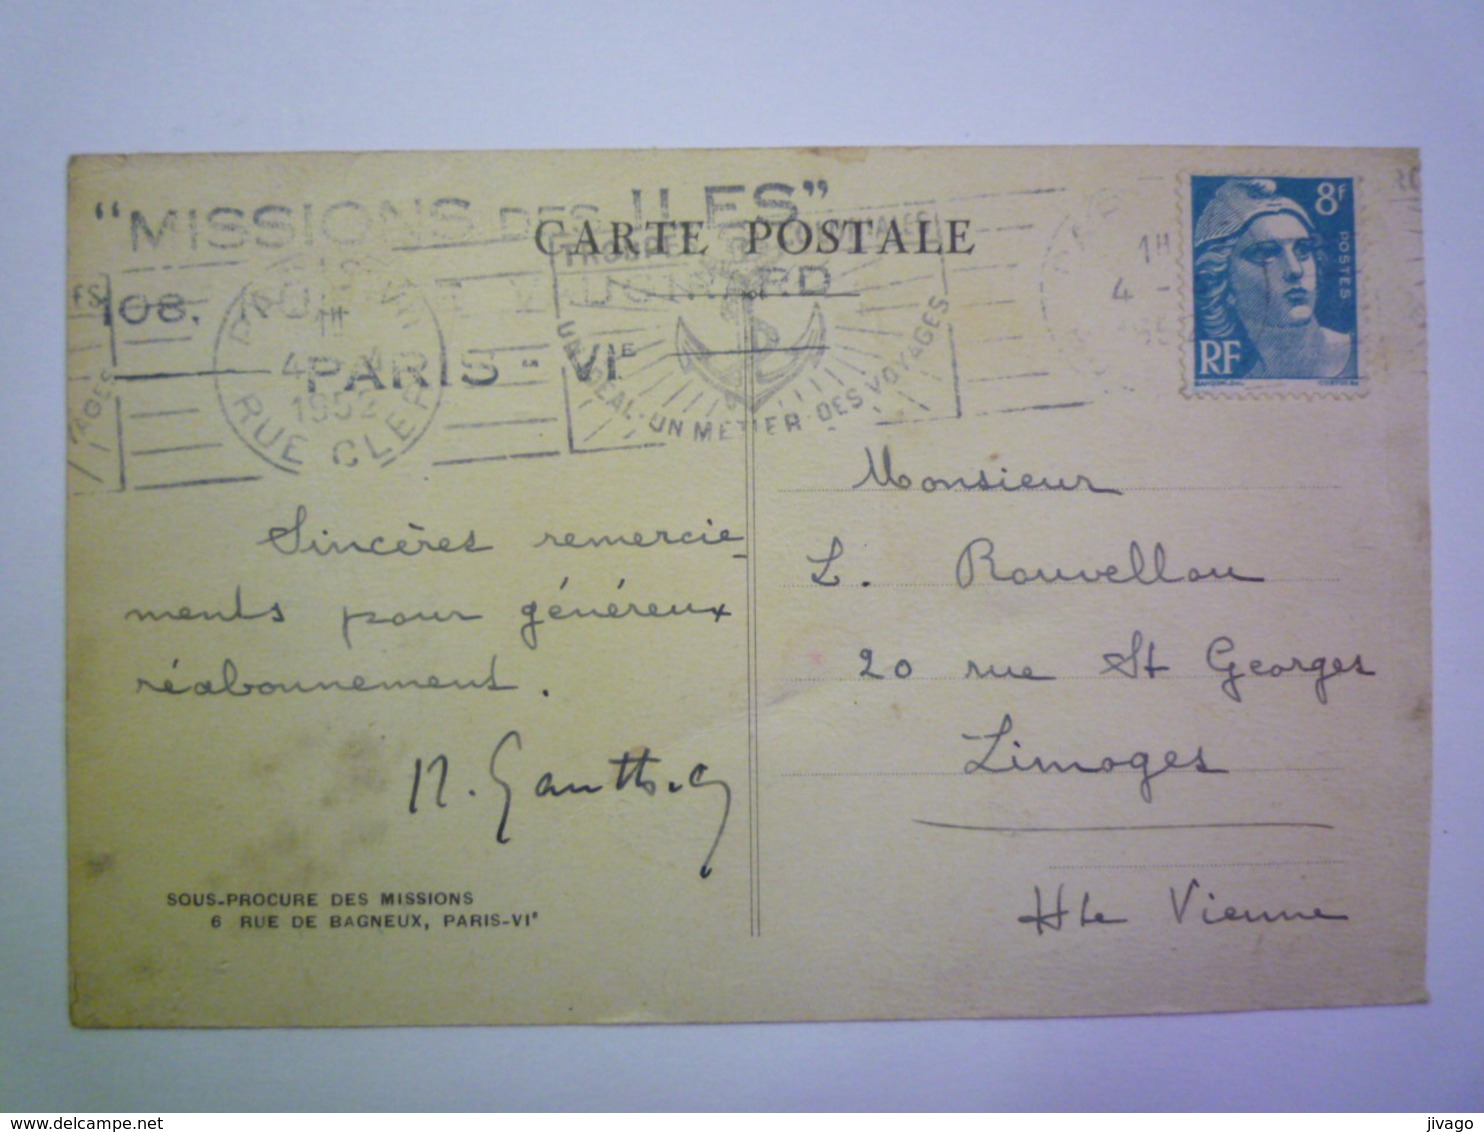 "MISSIONS DES ILES"
CARTE POSTALE
108,
PARIS - VIE
1H
4
1952
RUE CLER
TROUPES COLONIALES
UN IDEAL-UN METIER-DES VOYAGES
AGES
8F
POSTES
RF
1H
4 -
Sincères remercie-
ments pour généreux
réabonnement.
SOUS-PROCURE DES MISSIONS
6 RUE DE BAGNEUX, PARIS-VIe
Monsieur
L. Rouvellou
20 rue St Georges
Limoges
Hte Vienne
jivago